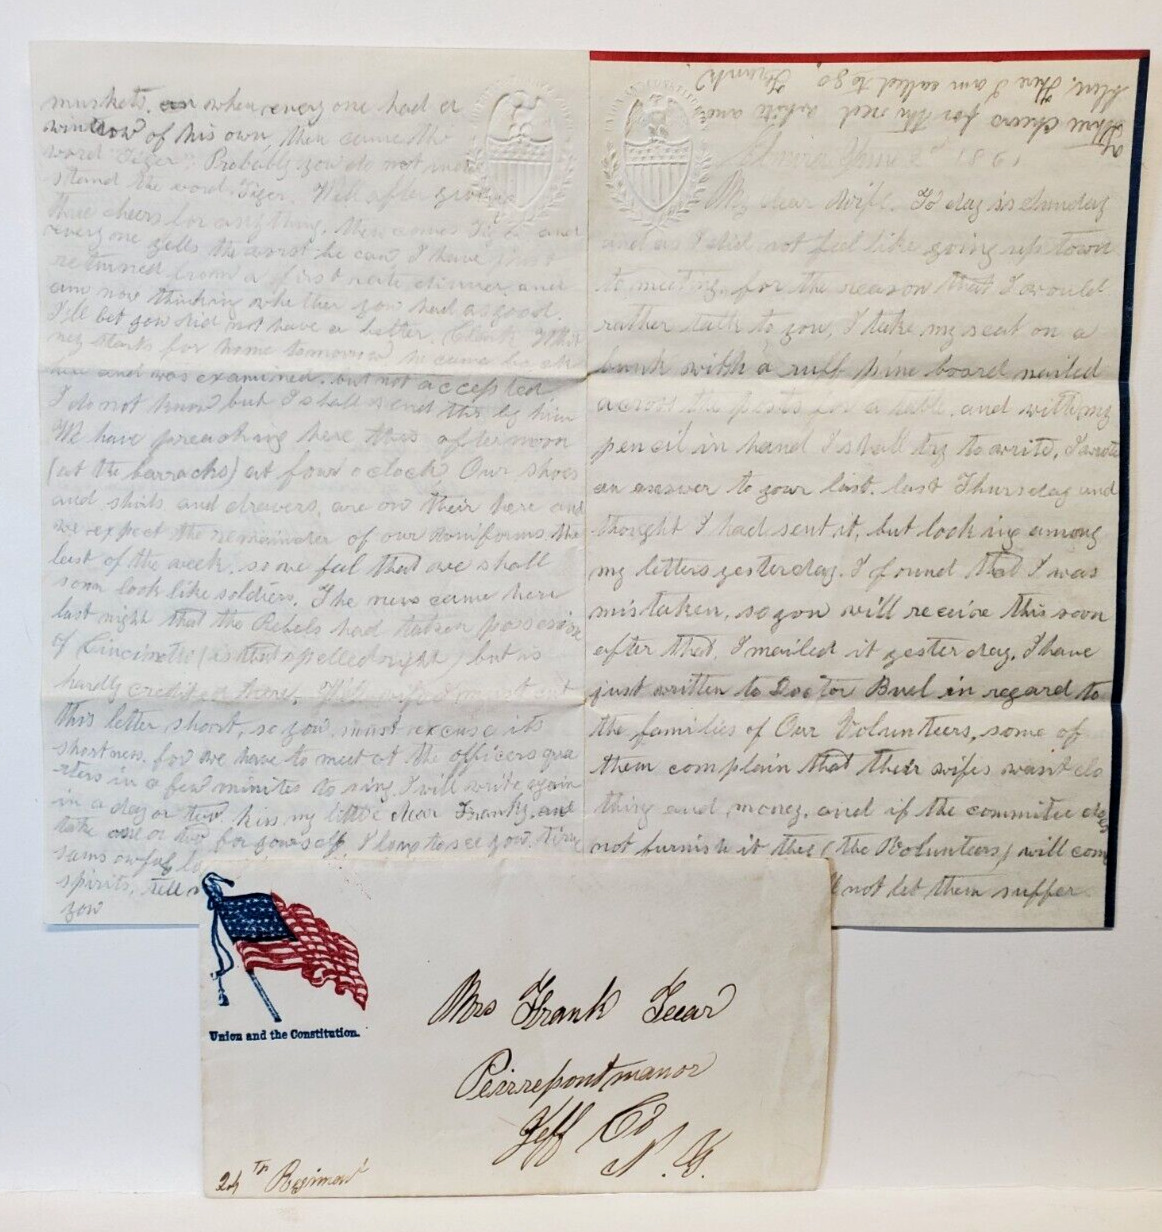 Elmira June 2 1861
My dear Wife. To day is Sunday
and as I did not feel like going up town
to meeting, for the reason that I would
rather talk to you, I take my seat on a
bunk with a ruff pine board nailed
across the posts for a table, and with my
pencil in hand I shall try to write, I wrote
an answer to your last. last Thursday and
thought I had sent it, but looking among
my letters yesterday, I found that I was
mistaken, so you will receive this soon
after that, I mailed it yesterday. I have
just written to Doctor Buel in regard to
the families of Our Volunteers, some of
them complain that their wifes want clo
thing and money, and if the committee does
not furnish it they (the Volunteers) will com
not let them suffer
muskets. when every one had a
window of his own, then came the
word "Tiger". Probably you do not under
stand the word Tiger. Well after giving
three cheers for any thing, then comes Tiger and
every one yells the worst he can I have just
returned from a first rate dinner, and
am now thinking whether you had as good.
I'll bet you did not have a better. Clark
starts for home tomorrow he came
here and was examined, but not accepted
I do not know but I shall send this by him
We have preaching here this afternoon
(at the barracks) at four o clock, Our shoes
and shirts and drawers, are on their here and
we expect the remainder of our uniforms the
last of the week, so we feel that we shall
soon look like soldiers. The news came here
last night that the Rebels had taken possession
of Cincinetti (is that spelled right) but is
hardly credited here, Well wife I must cut
this letter short, so you must excuse its
shortness, for we have to meet at the officers qua
rters in a few minutes to sing, I will write again
in a day or two, kiss my little dear Franky, and
take one or two for yourself, I long to see you,
sams awful
spirits, tell
you
Three cheers for the red white and
blue, Here I am called to go
Frank
Union and the Constitution.
Mrs Frank Tecar
Peirrepont manor
Jeff Co
N. Y.
24th Regiment